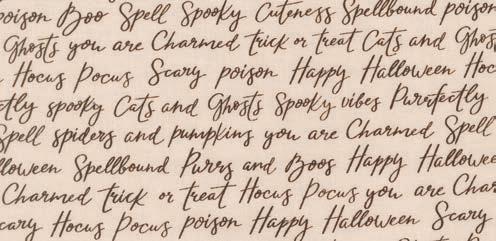 poison Boo Spell Spooky Cuteness Spellbound poison
Ghosts you are Charmed trick or treat Cats and Ghos
Hocus Pocus Scary poison Happy Halloween Hoc
ctly spooky Cats and Ghosts Spooky vibes Purrfectly
Spell spiders and pumpkins you are Charmed Spell
lloween Spellbound Purrs and Boos Happy Hallowee
Charmed trick or treat Hocus Pocus you are Char
cary Hocus Pocus poison Happy Halloween Scary